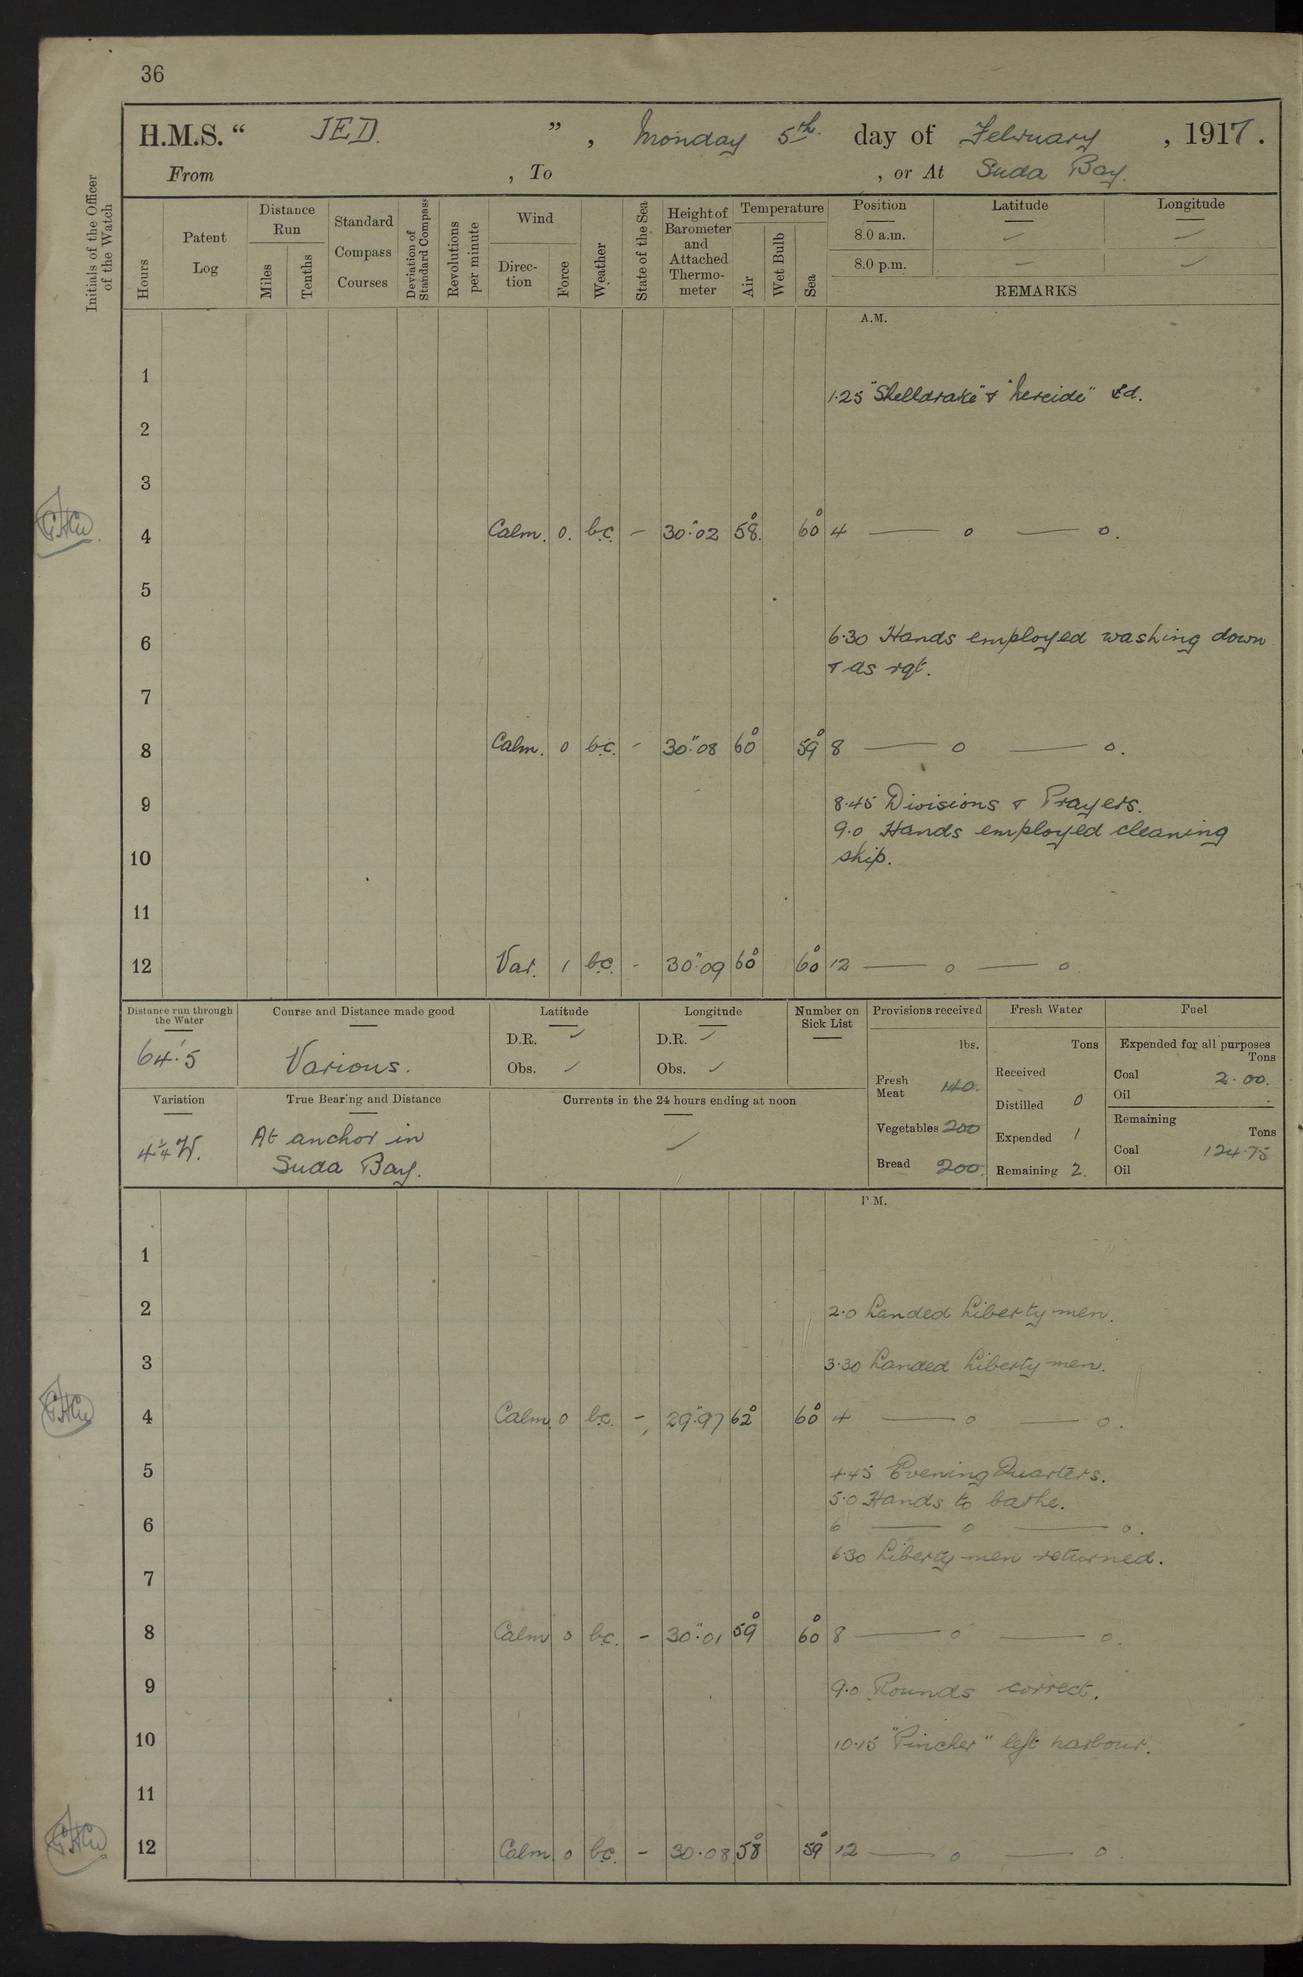 36
H.M.S. “ JED. ” , Monday 5th. day of February , 1917.
From , To , or At Suda Bay.
Initials of the Officer of the Watch
Hours
Patent Log
Distance Run
Miles
Tenths
Standard Compass Courses
Deviation of Standard Compass
Revolutions per minute
Wind
Direction
Force
Weather
State of the Sea
Height of Barometer and Attached Thermometer
Temperature
Air
Wet Bulb
Sea
Position Latitude Longitude
8.0 a.m. ✓ ✓
8.0 p.m. ✓ ✓
REMARKS
A.M.
1
1.25 "Shelldrake" & "Nereide" ed.
2
3
4 Calm. 0. b.c. - 30".02 58°. 60° 4 — o — o.
5
6 6.30 Hands employed washing down
& as rqt.
7
8 Calm. 0 b.c. - 30".08 60° 59° 8 — o — o.
9 8.45 Divisions & Prayers.
9.0 Hands employed cleaning
10 ship.
11
12 Var. 1 b.c. - 30".09 60° 60° 12 — o — o
Distance run through the Water
64'.5
Course and Distance made good
Various.
Latitude
D.R. ✓
Obs. ✓
Longitude
D.R. ✓
Obs. ✓
Number on Sick List
Provisions received
lbs.
Fresh Meat 140.
Vegetables 200
Bread 200.
Fresh Water
Tons
Received
Distilled 0
Expended 1
Remaining 2.
Fuel
Expended for all purposes
Tons
Coal 2.00.
Oil
Remaining
Tons
Coal 124.75
Oil
Variation
4 1/4 W.
True Bearing and Distance
At anchor in
Suda Bay.
Currents in the 24 hours ending at noon
✓
P.M.
1
2 2.0 Landed Liberty men.
3 3.30 Landed Liberty men.
4 Calm 0 b.c. - 29".97 62° 60° 4 — o — o.
5 4.45 Evening Quarters.
5.0 Hands to bathe.
6 6 — o — o.
6.30 Liberty men returned.
7
8 Calm 0 b.c. - 30".01 59° 60° 8 — o — o.
9 9.0 Rounds correct.
10 10.15 "Pincher" left harbour.
11
12 Calm. 0 b.c. - 30.08 58° 59° 12 — o — o.